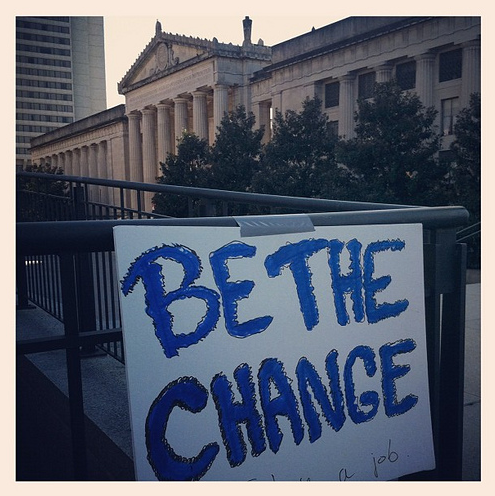 BE THE
CHANGE
a job